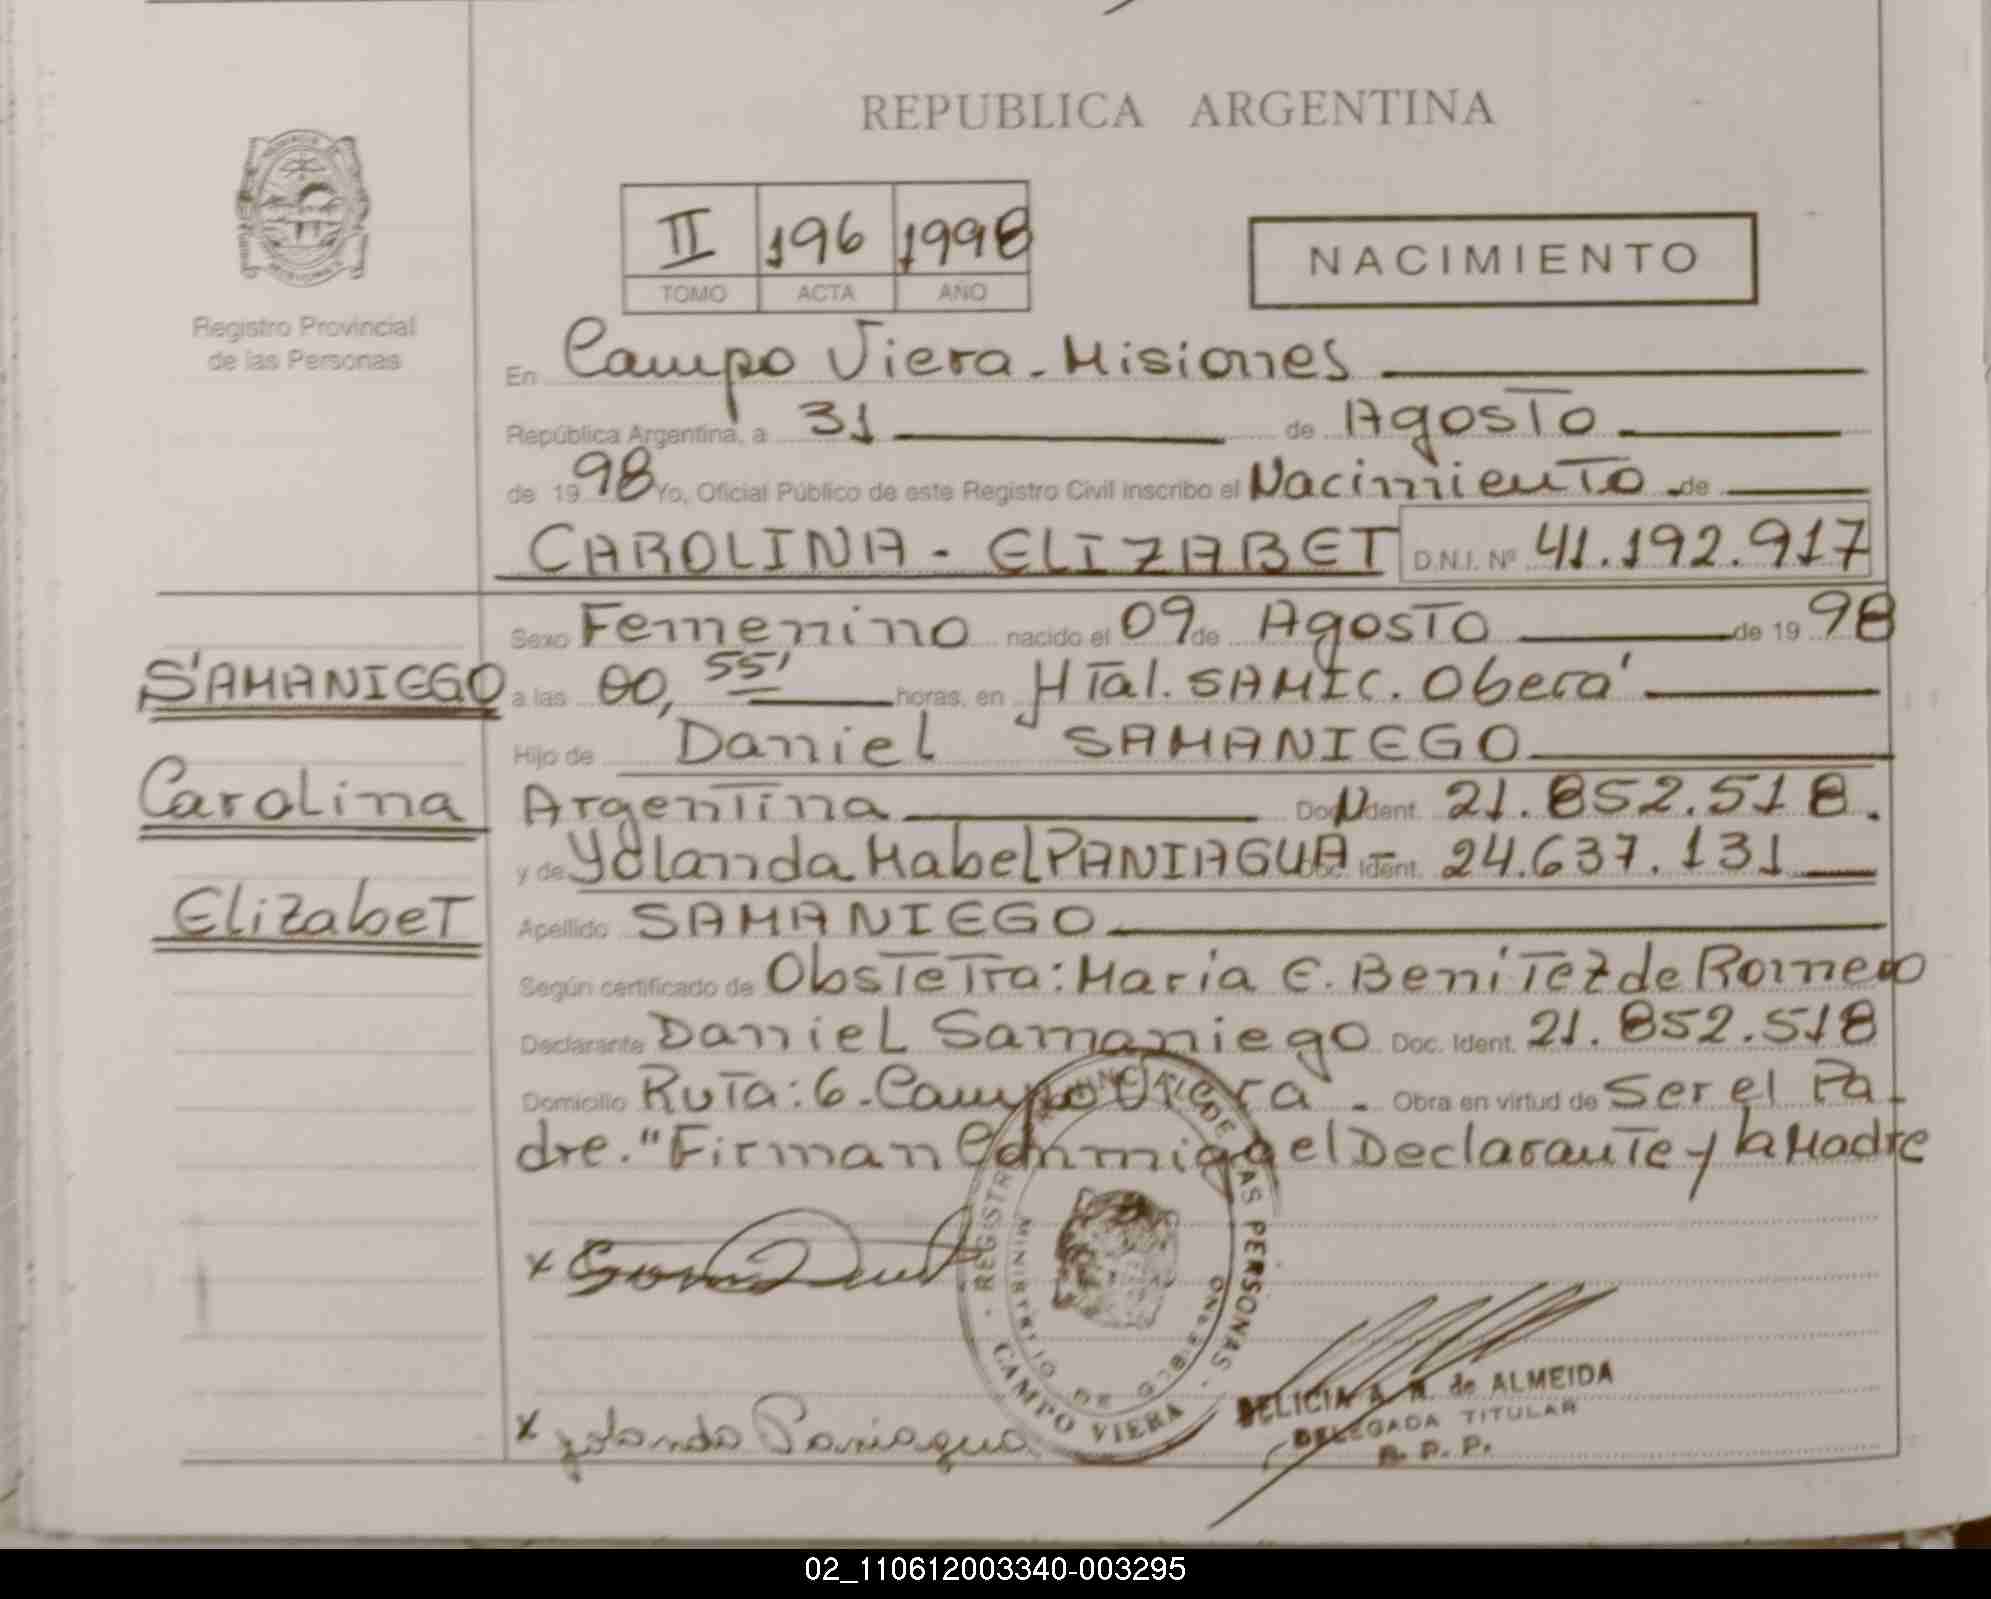 REPUBLICA ARGENTINA
II 196 1998
TOMO ACTA AÑO
NACIMIENTO
Registro Provincial
de las Personas
En Campo Viera - Misiones
República Argentina, a 31 de Agosto
de 1998 Yo, Oficial Público de este Registro Civil inscribo el Nacimiento de
CAROLINA - ELIZABET D.N.I. Nº 41.192.917
Sexo Femenino nacido el 09 de Agosto de 1998
a las 00, 55' horas, en HTal. SAMIC. Oberá
Hijo de Daniel SAMANIEGO
Argentina Doc. Ident. 21.852.518.
y de Yolanda Mabel PANIAGUA Ident. 24.637.131
Apellido SAMANIEGO
Según certificado de Obstetra: Maria E. Benitez de Romero
Declarante Daniel Samaniego Doc. Ident. 21.852.518
Domicilio Ruta: 6 - Campo Viera - Obra en virtud de Ser el Pa-
dre. "Firman Conmigo el Declarante y la Madre
SAMANIEGO
Carolina
Elizabet
x
x Yolanda Paniagua
REGISTRO PROVINCIAL DE LAS PERSONAS
MINISTERIO DE GOBIERNO
CAMPO VIERA
DELICIA A. N. de ALMEIDA
DELEGADA TITULAR
R. P. P.
02_110612003340-003295